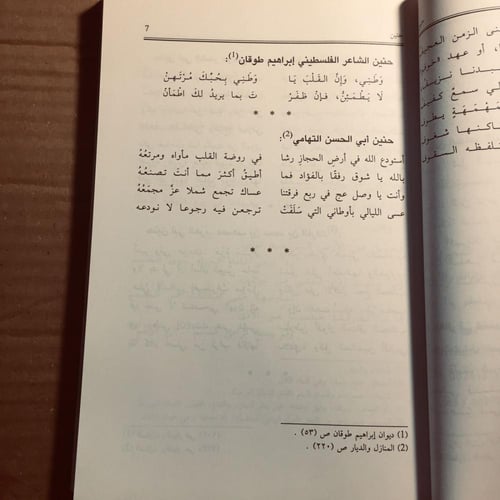 7
حنين
حنين الشاعر الفلسطيني إبراهيم طوقان(1):
وَطَنِي، وَإِنَّ القَلْبَ يَا وَطَنِي بِحُبِّكَ مُرْتَهَنْ
لَا يَطْمَئِنُّ، فَإِنْ ظَفَرْ تَ بما يريدُ لكَ اطْمَأَن
* * *
حنين أبي الحسن التهامي(2):
أستودع الله في أرض الحجاز رشا في روضة القلب مأواه ومرتعُهُ
بالله يا شوق رفقًا بالفؤاد فما أطيقُ أكثرَ مما أنتَ تصنعُهُ
وأنت يا وصل عج في ربع فرقتنا عساك تجمع شملا عزَّ مجمَعُهُ
عسى الليالي بأوطاني التي سَلَفَتْ ترجعن فيه رجوعا لا نودعه
* * *
(1) ديوان إبراهيم طوقان ص (٥٣) .
(2) المنازل والديار ص (٢٢٠) .
نى الزمن
، أو عهد
يدنا
لي سمعَ